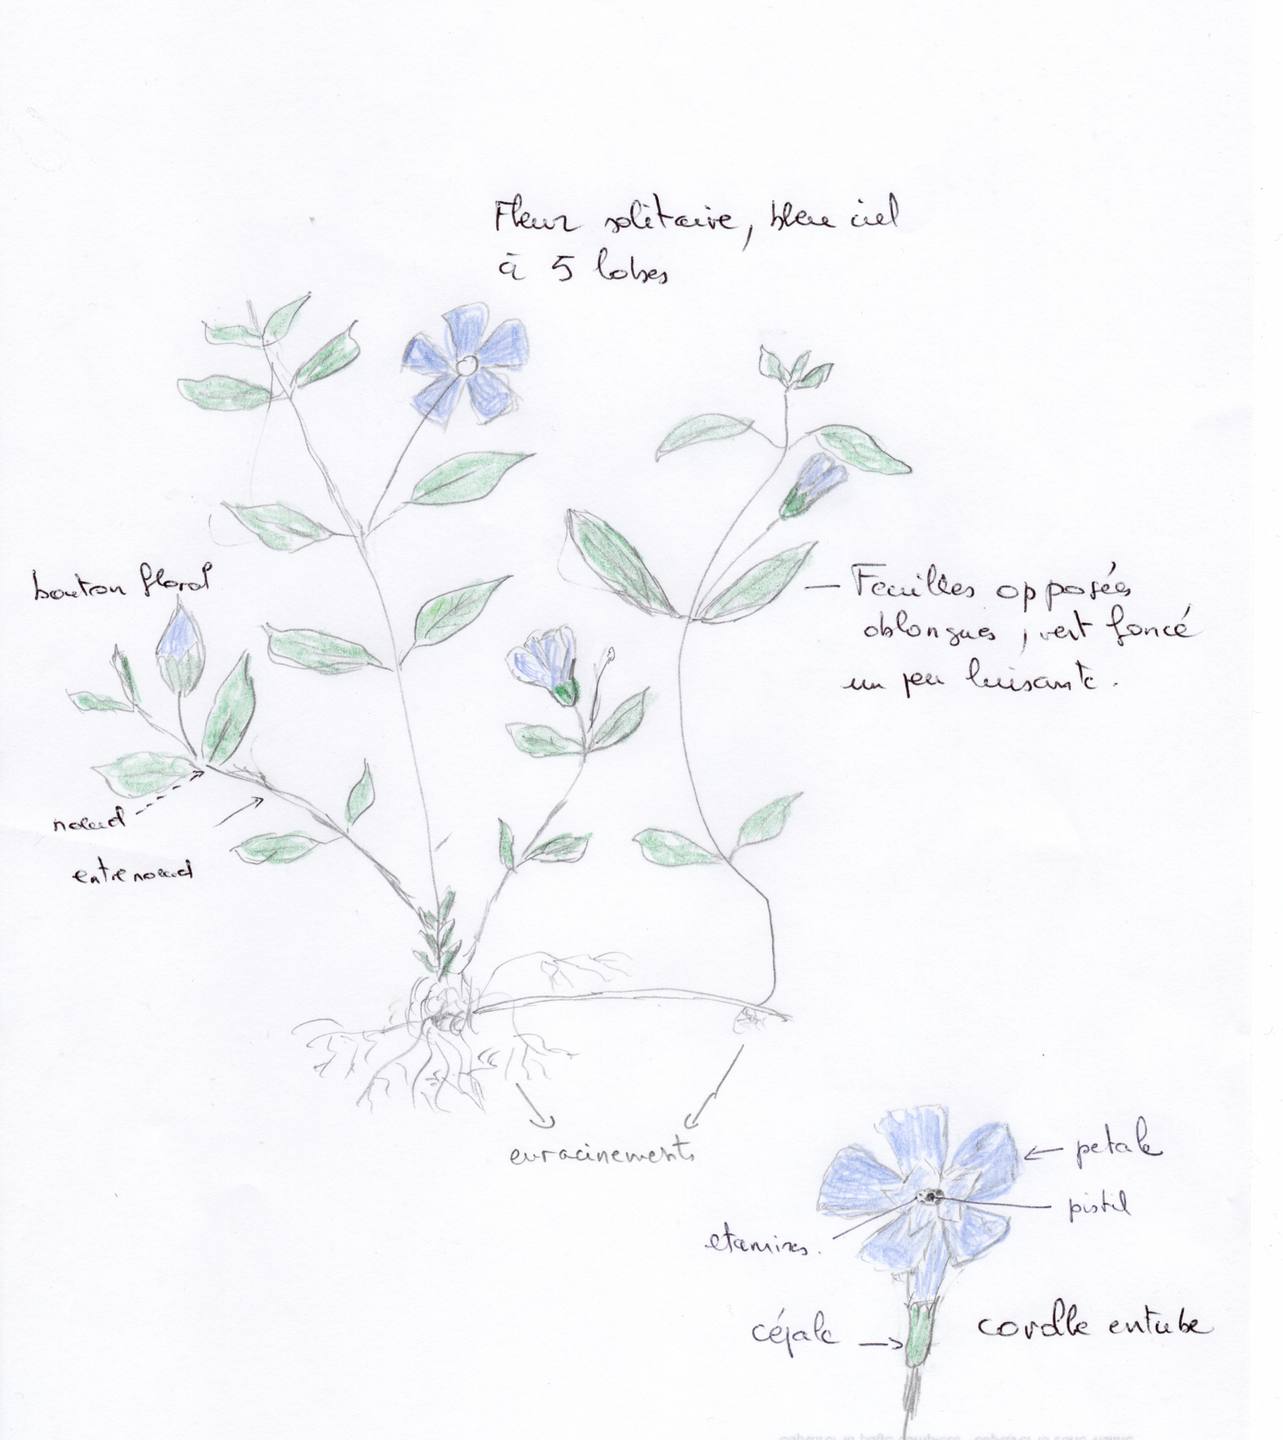 Fleur solitaire, bleu ciel
à 5 lobes
bouton floral
Feuilles opposées
oblongues, vert foncé
un peu luisante.
noeud
entrenoeud
enracinements
petale
pistil
etamines.
cépale
corolle en tube